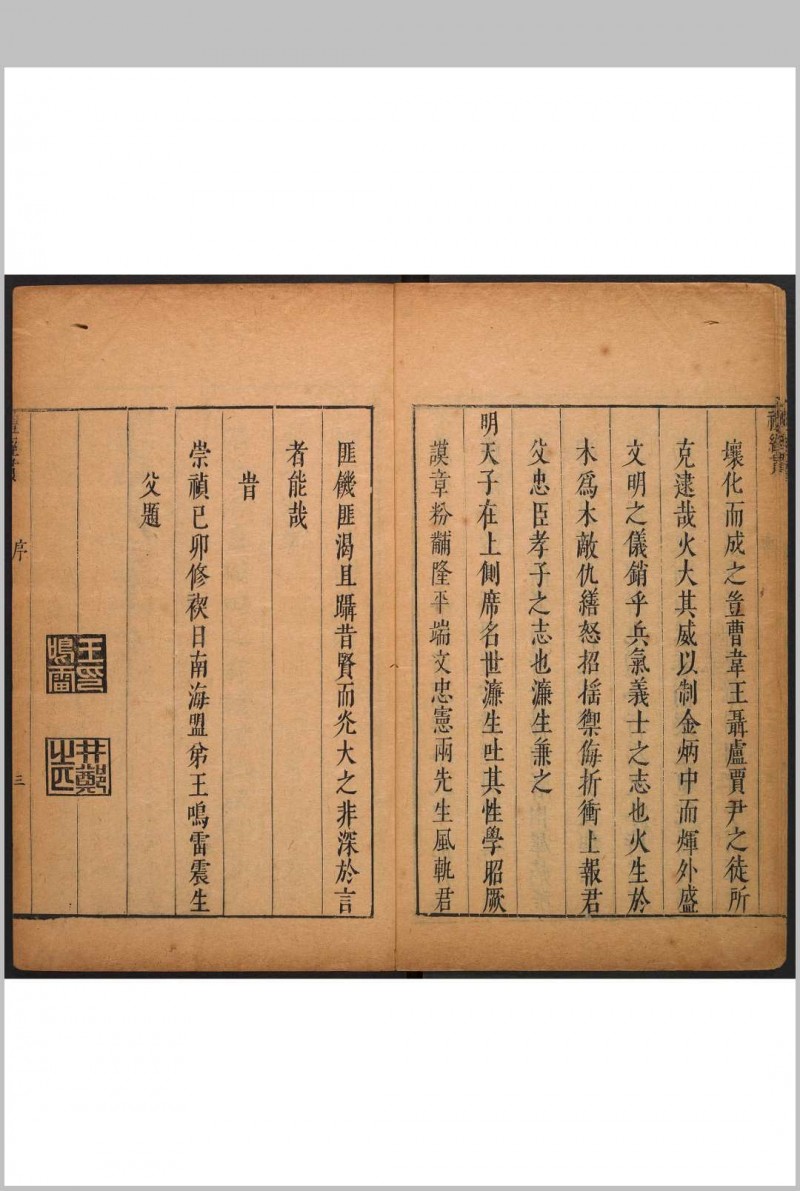 壞化而成之豈曹韋王聶盧賈尹之徒所
克逮哉火大其威以制金炳中而煇外盛
文明之儀銷乎兵氣義士之志也火生於
木爲木敵仇繕怒招揺禦侮折衝上報君
父忠臣孝子之志也濂生兼之
明天子在上側席名世濂生吐其性學昭厥
謨章粉黼隆平端文忠憲兩先生風軌君
匪饑匪渴且躡昔賢而光大之非深於言
者能哉
旹
崇禎己卯修禊日南海盟弟王鳴雷震生
父題
王印鳴雷
序
三